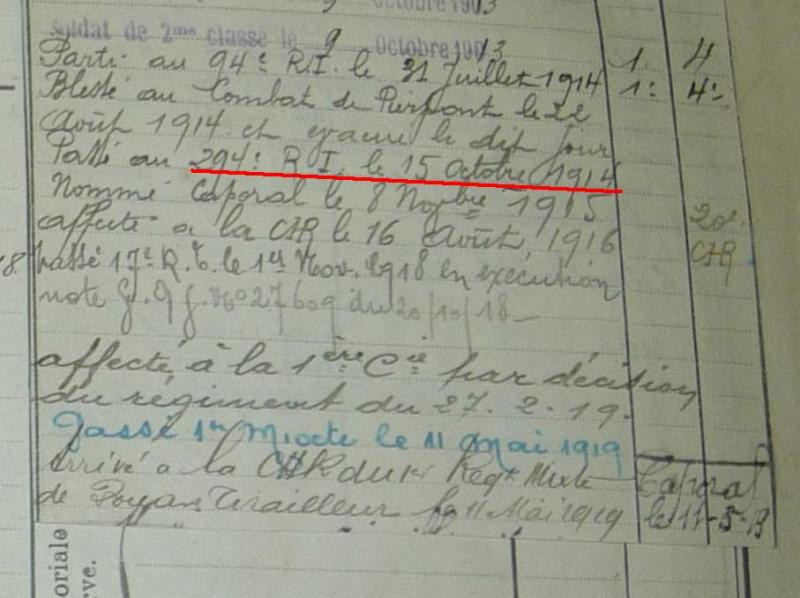 Octobre 1903
Soldat de 2me classe le 9 Octobre 1913
Parti au 94e R.I. le 31 Juillet 1914 1. 4
Blessé au Combat de Pierpont le 22 1: 4:
Août 1914 et évacué le dit jour
Passé au 294: R I. le 15 Octobre 1914
Nommé Caporal le 8 Novbre 1915
affecté a la CHR le 16 Août, 1916 20e CHR
8. passé 17e R.I. le 1er Nov. 1918 en exécution
note G.Q.G. No 27609 du 20/10/18_
affecté, à la 1ère Cie par décision
du régiment du 27. 2. 19.
Passé 1er Mixte le 11 Mai 1919
Arrivé a la CHR du 1r Régt Mixte Caporal
de Tirailleur le 11 Mai 1919 le 11-5-19
oriale
rve.